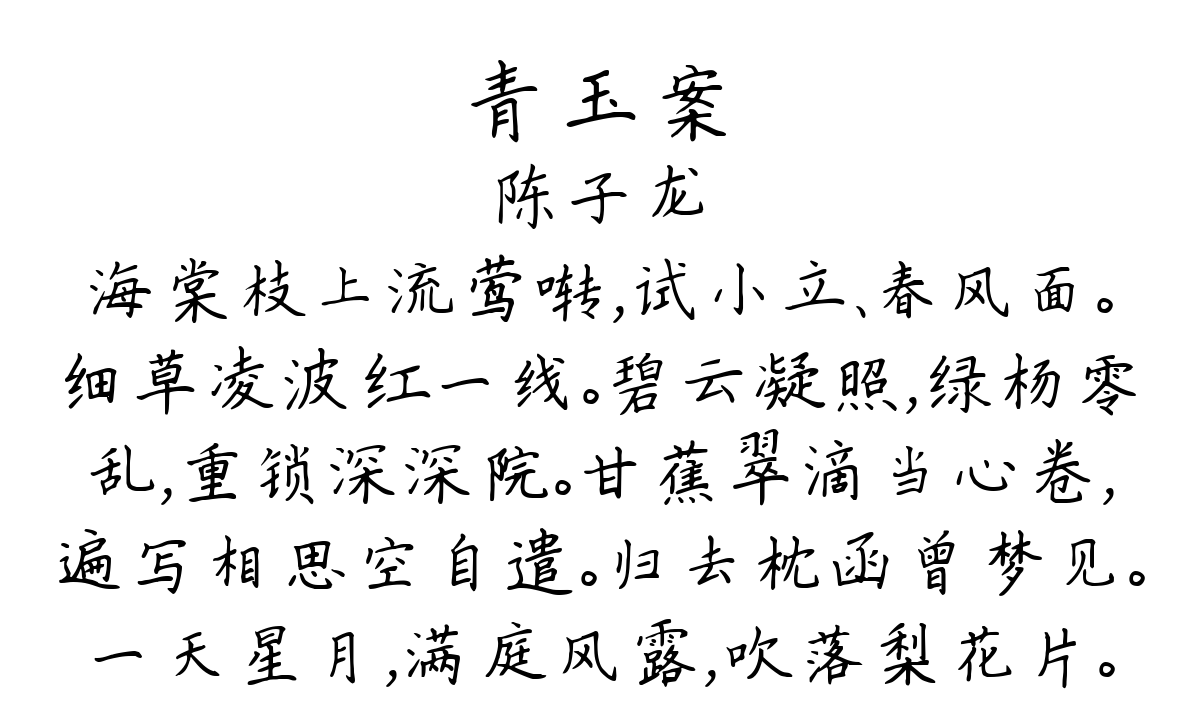 青玉案
陈子龙
海棠枝上流莺啭,试小立、春风面。
细草凌波红一线。碧云凝照,绿杨零
乱,重锁深深院。甘蕉翠滴当心卷,
遍写相思空自遣。归去枕函曾梦见。
一天星月,满庭风露,吹落梨花片。